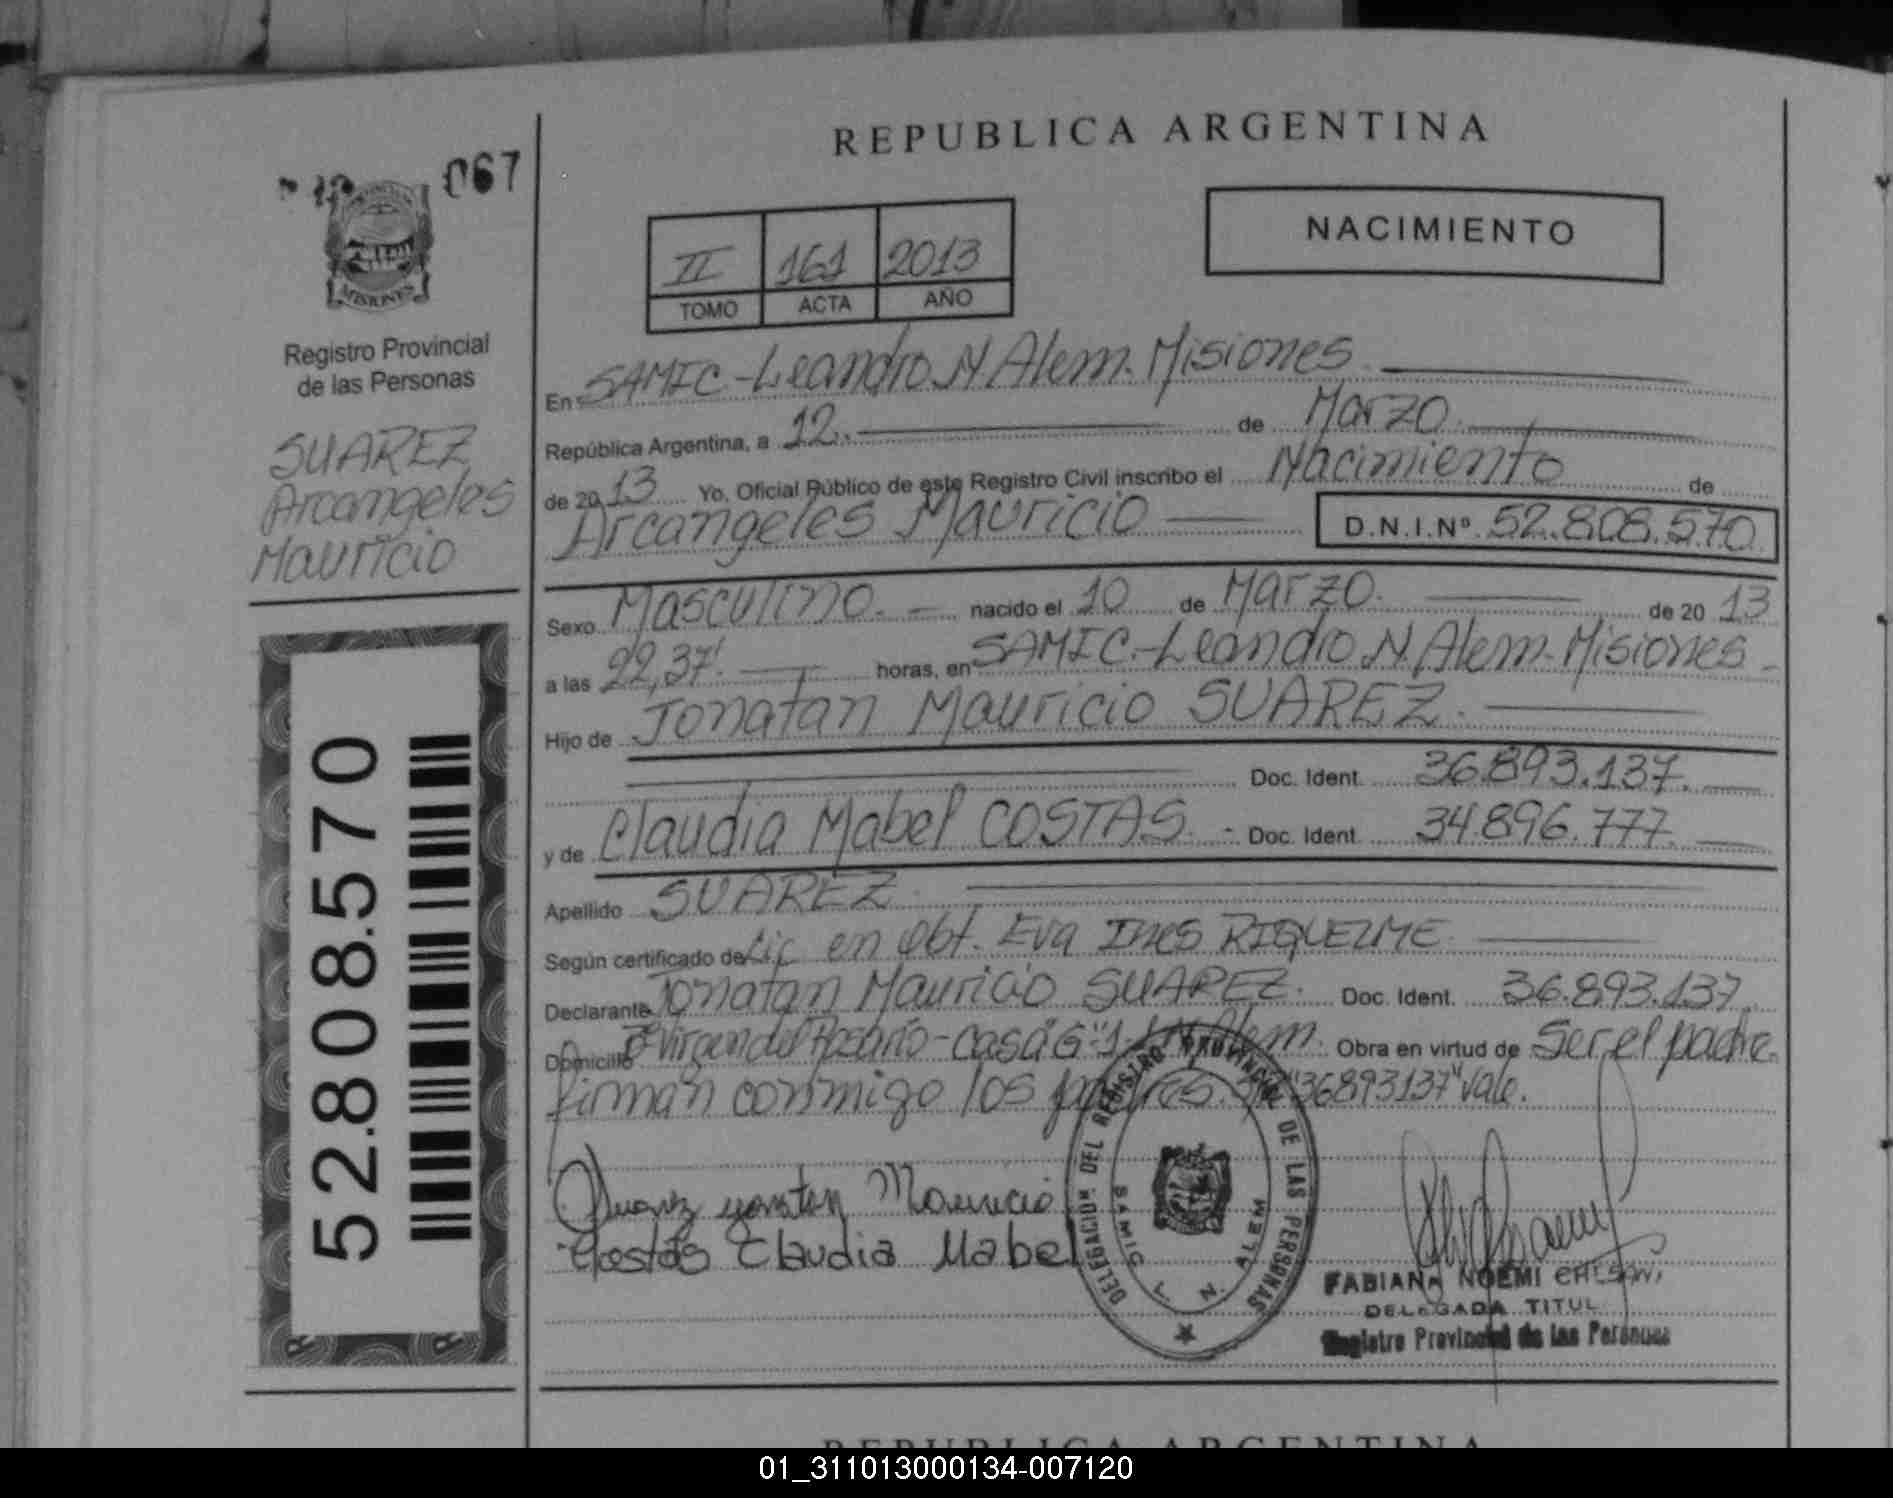 REPUBLICA ARGENTINA
067
MISIONES
Registro Provincial
de las Personas
SUAREZ
Arcangeles
Mauricio
52.808.570
NACIMIENTO
II 161 2013
TOMO ACTA AÑO
En SAMIC-Leandro N Alem. Misiones.
República Argentina, a 12. de Marzo.
de 2013 Yo, Oficial Público de este Registro Civil inscribo el Nacimiento de
Arcangeles Mauricio D.N.I.Nº 52.808.570.
Sexo Masculino. nacido el 10 de Marzo. de 2013
a las 22,37'. horas, en SAMIC.-Leandro N Alem-Misiones
Hijo de Jonatan Mauricio SUAREZ.
Doc. Ident. 36.893.137.
y de Claudia Mabel COSTAS. - Doc. Ident. 34.896.777.
Apellido SUAREZ.
Según certificado de Lic en Obt. Eva Ines RIQUELME.
Declarante Jonatan Mauricio SUAREZ. Doc. Ident. 36.893.137
Domicilio Bº Virgen del Rosario-Casa "G"1-L N Alem. Obra en virtud de Ser el padre.
firman conmigo los padres. "36893137" Vale.
Suarez Jonatan Mauricio
Costas Claudia Mabel
DELEGACION DEL REGISTRO PROVINCIAL DE LAS PERSONAS
SAMIC L. N. ALEM
FABIANA NOEMI
DELEGADA TITUL
Registro Provincial de las Personas
REPUBLICA ARGENTINA
01_311013000134-007120